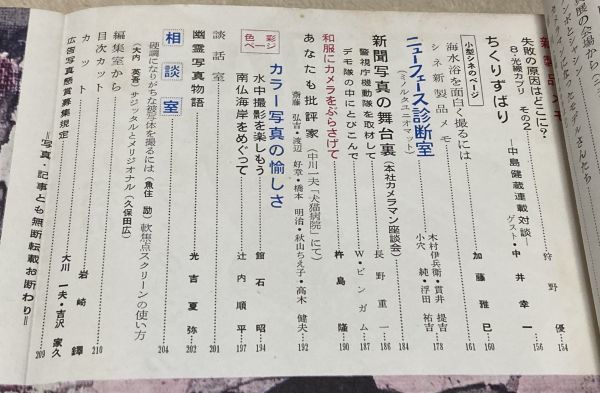 新製品メモ
失敗の原因はどこに？……狩野優…154
8・光線カブリ その2
ちくりずばり ―中島健蔵連載対談― ゲスト・中井幸一…156
小型シネのページ
海水浴を面白く撮るには……加藤雅巳…160
シネ新製品メモ……161
ニューフェース診断室
(ミノルタユニオマット)
木村伊兵衛・貫井提吉
小穴純・浮田祐吉…178
新聞写真の舞台裏(本社カメラマン座談会)……184
警視庁機動隊を取材して……長野重一…186
デモ隊の中にとびこんで……W・ビンガム…187
和服にカメラをぶらさげて……杵島隆…190
あなたも批評家(中川一夫「犬猫病院」にて)
斎藤弘吉・渡辺好章・橋本明治・秋山ちえ子・高木健夫…192
色彩ページ
カラー写真の愉しさ
水中撮影を楽しもう……館石昭…194
南仏海岸をめぐって……辻内順平…197
談話室……201
幽霊写真物語……光吉夏弥…202
相談室……204
硬調になりがちな被写体を撮るには(魚住励) 軟焦点スクリーンの使い方
(大内英吾) サジッタルとメリジオナル(久保田広)
編集室から……210
目次カット……岩崎鐸
カット……大川一夫・吉沢家久
広告写真懸賞募集規定……209
＝写真・記事とも無断転載お断わり＝